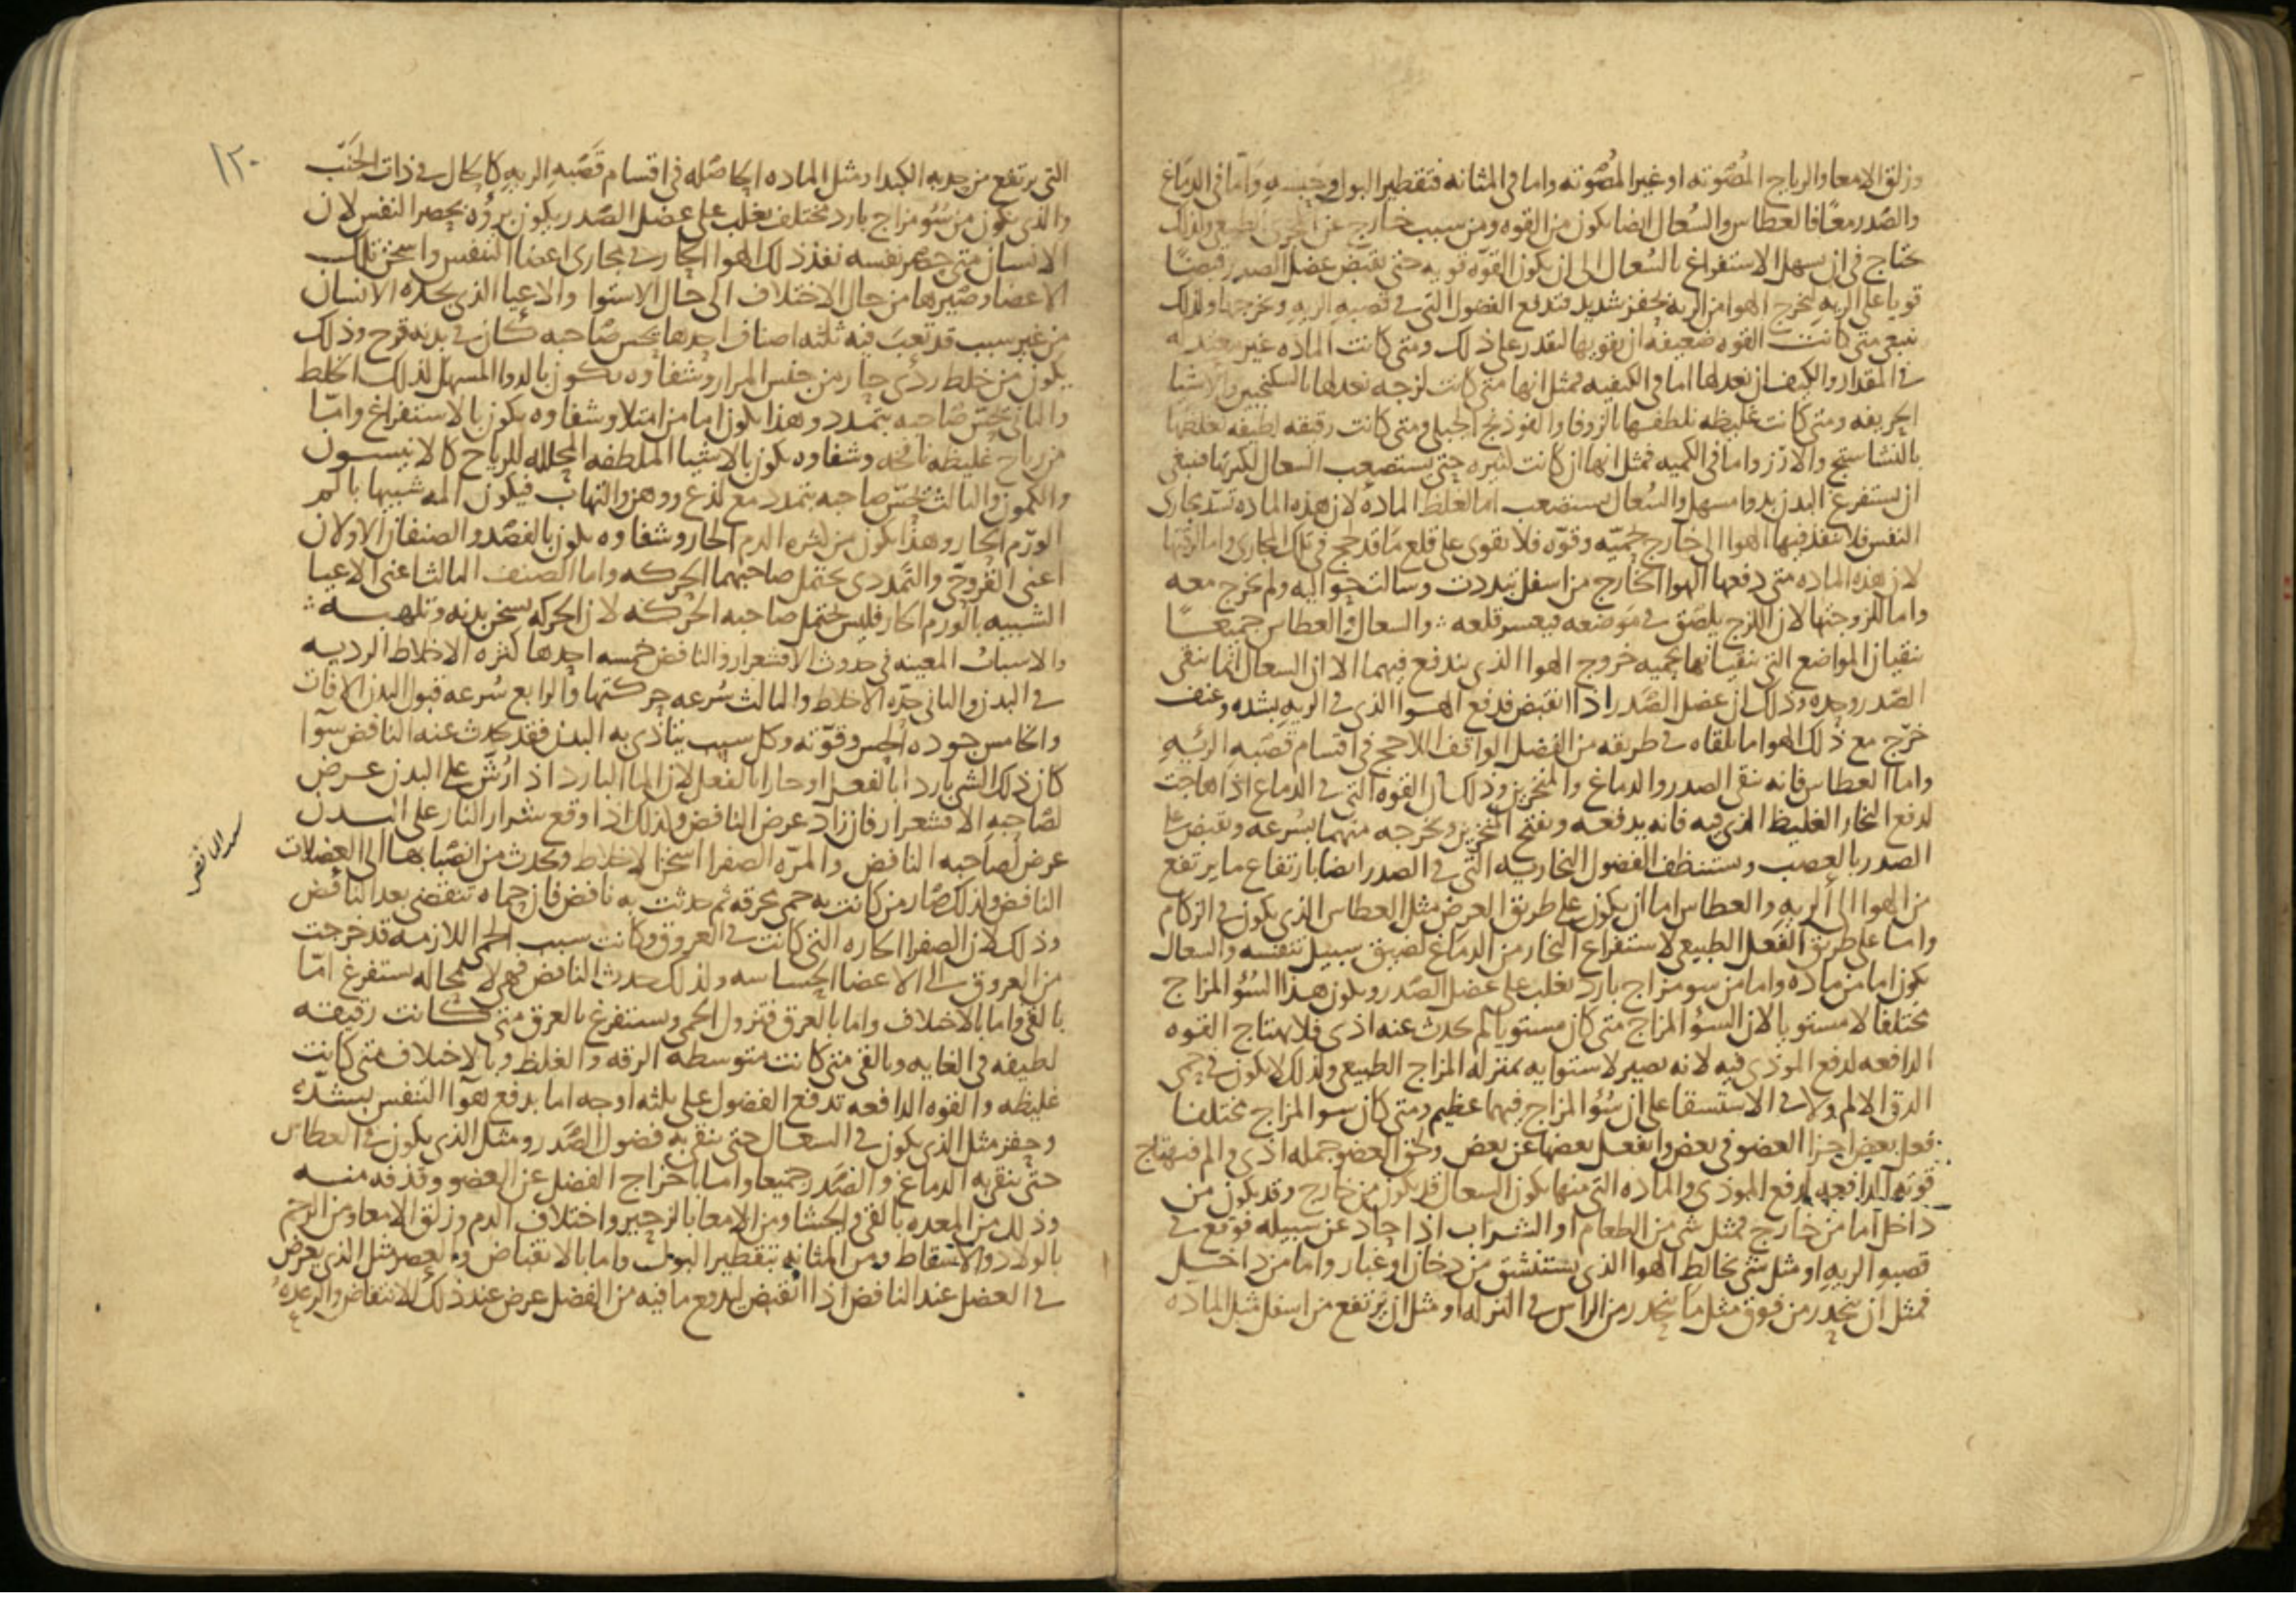 وزلق الامعا والرياح المصوته او غير المصوته واما في المثانه فتقطير البول وحبسه واما في الدماغ
والصدر معا فالعطاس والسعال ايضا يكون من القوه ومن سبب خارج عن المجرى الطبيعي ولذلك
يحتاج في ان سهل الاستفراغ بالسعال الى ان يكون القوه قويه حتى تقبض عضل الصدر قبضا
قويا على الريه ليخرج الهوا من الريه بحفز شديد فتدفع الفضول التي في قصبه الريه ويخرجها ولذلك
ينبغي متى كانت القوه ضعيفه ان يقويها لتقدر على ذلك ومتى كانت الماده غير معتدله
في المقدار والكيف ان نعدلها اما في الكيفيه فمثل انها متى كانت لزجه نعدلها بالسكنجبين والاشيا
الحريفه ومتى كانت غليظه نلطفها بالزوفا والفوذنج الجبلي ومتى كانت رقيقه لطيفه نغلظها
بالنشاستج والارز واما في الكميه فمثل انها ان كانت كثيره حتى يستصعب السعال لكثرتها فينبغي
ان يستفرغ البدن بدوا مسهل والسعال يستصعب اما لغلظ الماده لان هذه الماده تسد مجارى
النفس فلا ينفذ فيها الهوا الى خارج بحميه وقوه فلا يقوى على قلع ما قد لحج في تلك المجارى واما لرقتها
لان هذه الماده متى دفعها الهوا الخارج من اسفل تبددت وسالت حواليه ولم يخرج معه
واما للزوجتها لان اللزج يلصق في موضعه فيعسر قلعه والسعال والعطاس جميعا
ينقيان المواضع التي ينقيانها بحميه خروج الهوا الذي يندفع فيهما الا ان السعال انما ينقى
الصدر وحده وذلك ان عضل الصدر اذا انقبض فدفع الهوا الذي في الريه بشده وعنف
خرج مع ذلك الهوا ما تلقاه في طريقه من الفضل الواقف اللاحج في اقسام قصبه الرئه
واما العطاس فانه ينقى الصدر والدماغ والمنخرين وذلك ان القوه التي في الدماغ اذا هاجت
لدفع البخار الغليظ الذي فيه فانه يدفعه ويفتح المنخرين ويخرجه منهما بسرعه وتقبض على
الصدر بالعصب وستنظف الفضول البخاريه التي في الصدر ايضا بارتفاع ما يرتفع
من الهوا الى الريه والعطاس اما ان يكون على طريق العرض مثل العطاس الذي يكون في الزكام
واما على طريق الفعل الطبيعي لاستفراغ البخار من الدماغ لضيق سبيل تنفسه والسعال
يكون اما من ماده واما من سو مزاج بارد يغلب على عضل الصدر ويكون هذا السؤ المزاج
مختلفا لا مستويا لان السؤ المزاج متى كان مستويا لم يحدث عنه اذى فلا يهتاج القوه
الدافعه لدفع الموذى فيه لانه يصير لاستوايه بمنزله المزاج الطبيعي ولذلك لا يكون في حمى
الدق الالم ولا في الاستسقا على ان سؤ المزاج فيهما عظيم ومتى كان سو المزاج مختلفا
فعل بعض اجزا العضو في بعض وانفعل بعضها عن بعض ولحق العضو جمله اذى والم فتهتاج
قوته الدافعه لدفع الموذى والماده التي منها يكون السعال قد يكون من خارج وقد يكون من
داخل اما من خارج فمثل شى من الطعام او الشراب اذا حاد عن سبيله فوقع في
قصبه الريه او مثل شى يخالط الهوا الذي يستنشق من دخان او غبار واما من داخل
فمثل ان ينحدر من فوق مثل ما ينحدر من الراس في النزله او مثل ان يرتفع من اسفل مثل الماده
١٢٠
التي يرتفع من حدبه الكبد او مثل الماده الحاصله في اقسام قصبه الريه كالحال في ذات الجنب
والذي يكون من سؤ مزاج بارد مختلف يغلب على عضل الصدر يكون برؤه بحصر النفس لان
الانسان متى حصر نفسه نفذ ذلك الهوا الحار في مجارى اعضا التنفس واسخن تلك
الاعضا وصيرها من حال الاختلاف الى حال الاستوا والاعيا الذي يجده الانسان
من غير سبب قد تعب فيه ثلثه اصناف احدها يحس صاحبه كان في بدنه قرح وذلك
يكون من خلط ردى حار من جنس المرار وشفاوه يكون بالدوا المسهل لذلك الخلط
والثاني يحس صاحبه بتمدد وهذا يكون اما من امتلا وشفاوه يكون بالاستفراغ واما
من رياح غليظه نافخه وشفاوه يكون بالاشيا الملطفه المحلله للرياح كالانيسون
والكمون والثالث يحس صاحبه بتمدد مع لذع ووهن والتهاب فيكون المه شبيها بالم
الورم الحار وهذا يكون من كثره الدم الحار وشفاوه يكون بالفصد والصنفان الاولان
اعنى القروحي والتمددى يحتمل صاحبهما الحركه واما الصنف الثالث اعنى الاعيا
الشبيه بالورم الحار فليس يحتمل صاحبه الحركه لان الحركه يسخن بدنه وتلهبه
والاسباب المعينه في حدوث الاقشعرار والنافض خمسه احدها كثره الاخلاط الرديه
في البدن والثاني حده الاخلاط والثالث سرعه حركتها والرابع سرعه قبول البدن الافات
والخامس جوده الحس وقوته وكل سبب يتاذى به البدن فقد يحدث عنه النافض سوا
كان ذلك الشى باردا بالفعل او حارا بالفعل لان الما البارد اذا رش على البدن عرض
لصاحبه الاقشعرار فان زاد عرض النافض ولذلك اذا وقع شرار النار على البدن
عرض لصاحبه النافض والمره الصفرا اسخن الاخلاط ويحدث من انصبابها الى العضلات
النافض ولذلك صار من كانت به حمى محرقه ثم حدثت به نافض فان حماه تنقضى بعد النافض
وذلك لان الصفرا الحاره التي كانت في العروق وكانت سبب الحمى اللازمه قد خرجت
من العروق الى الاعضا الحساسه ولذلك حدث النافض فهى لا محاله ستفرغ اما
بالقى واما بالاختلاف واما بالعرق فتزول الحمى وستفرغ بالعرق متى كانت رقيقه
لطيفه في الغايه وبالقى متى كانت متوسطه الرقه والغلظ وبالاختلاف متى كانت
غليظه والقوه الدافعه تدفع الفضول على ثلثه اوجه اما بدفع هوا التنفس بشده
وحفز مثل الذي يكون في السعال حتى ينقى به فضول الصدر ومثل الذي يكون في العطاس
حتى ينقى به الدماغ والصدر جميعا واما باخراج الفضل عن العضو وقذفه منه
وذلك من المعده بالقى والجشا ومن الامعا بالزحير واختلاف الدم وزلق الامعا ومن الرحم
بالولاد والاسقاط ومن المثانه بتقطير البول واما بالانقباض والعصر مثل الذي يعرض
في العضل عند النافض اذا انقبض ليدفع ما فيه من الفضل عرض عند ذلك الانتفاض والرعده